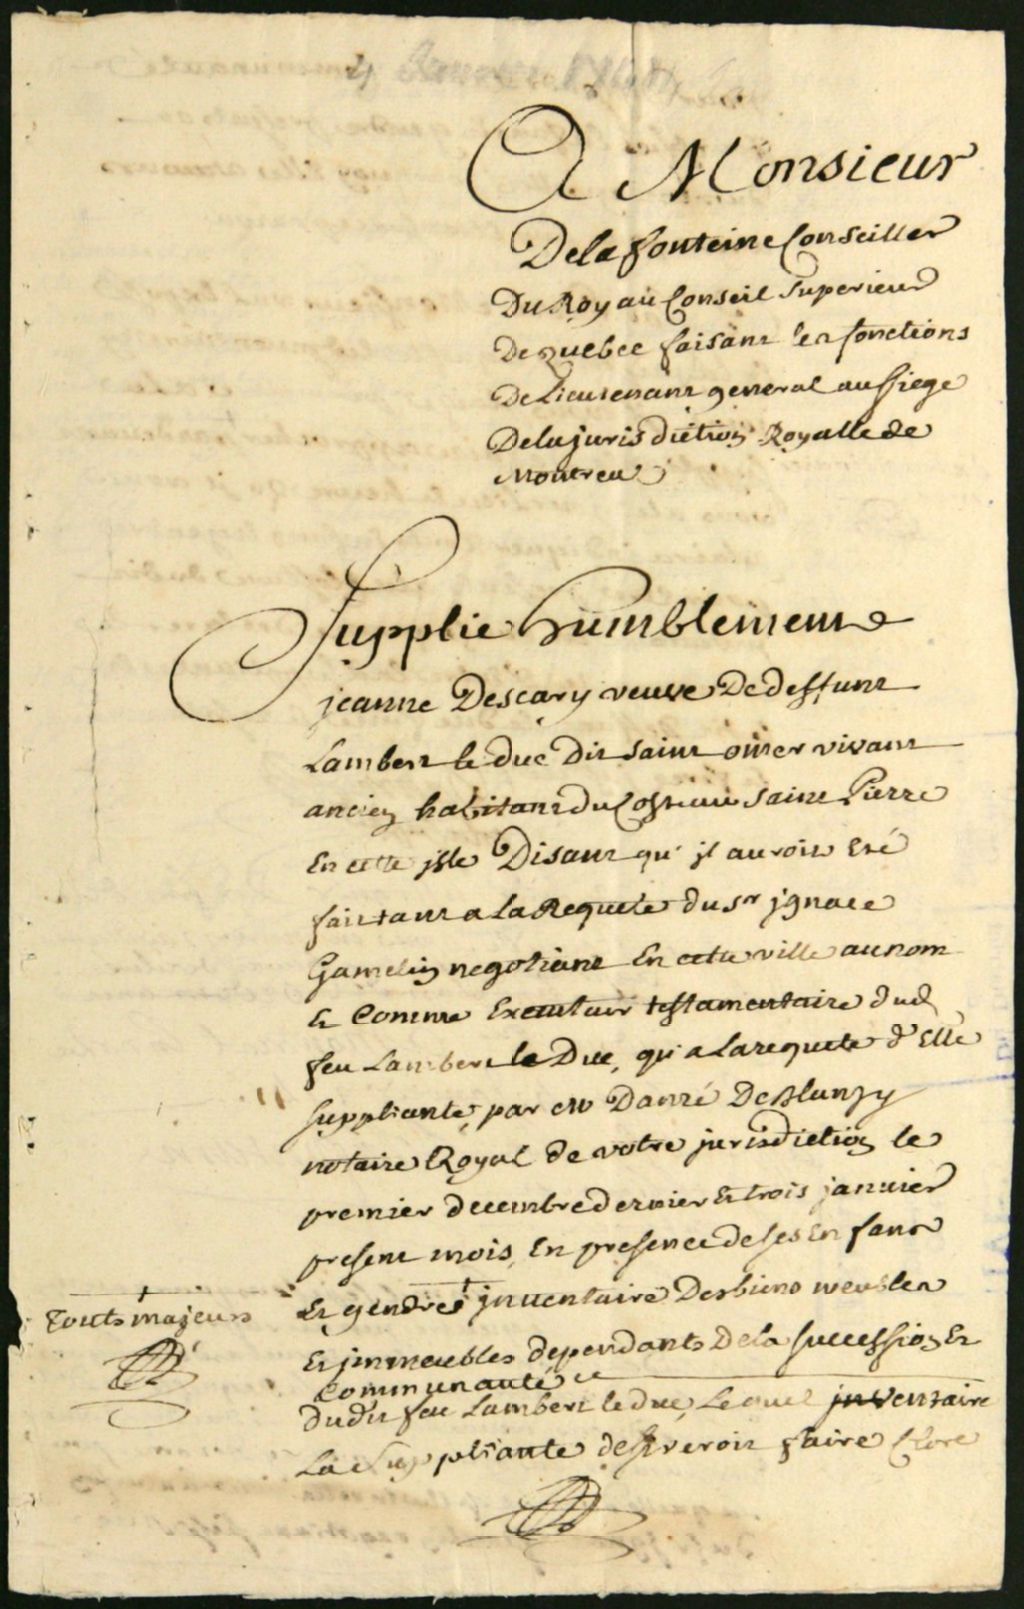 A Monsieur
Dela fonteine Conseiller
Du Roy au Conseil Superieur
De quebec faisant les fonctions
De Lieutenant general au siege
Dela jurisdiction Royalle de
Montreal
Supplie humblement
jeanne Descary veuve De deffunt
Lambert le duc Dit saint omer vivant
ancien habitant du Costeau saint Pierre
En cette jsle Disant qu'il auroit Eté
fait tant a la Requete du sr jgnace
Gamelin negotiant En cette ville au nom
Et Comme Executeur testamentaire dud
feu Lambert le Duc, qu'a la requete d'Elle
suppliante, par me Danré De Blanzy
notaire Royal de votre jurisdiction le
premier decembre dernier Et trois janvier
present mois, En presence de ses Enfans
Et gendres jnventaire Des biens meubles
touts majeurs
Et jmmeubles dependants De la succession Et
Communauté
Dudit feu Lambert le duc, Lequel jnventaire
La Suppliante desireroit faire Clore